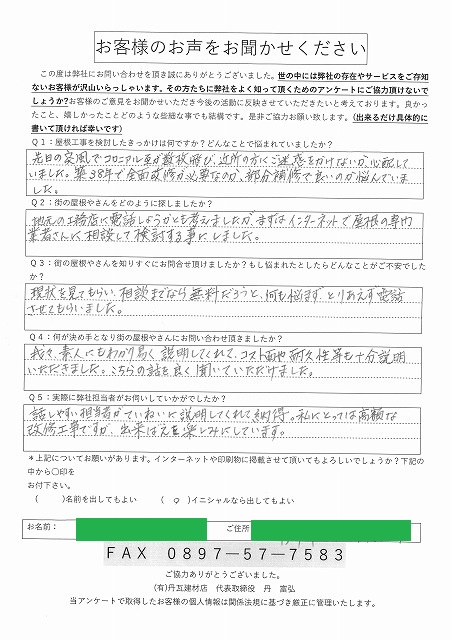 お客様のお声をお聞かせください
この度は弊社にお問い合わせを頂き誠にありがとうございました。世の中には弊社の存在やサービスをご存知
ないお客様が沢山いらっしゃいます。その方たちに弊社をよく知って頂くためのアンケートにご協力頂けないで
しょうか?お客様のご意見をお聞かせいただき今後の活動に反映させていただきたいと考えております。良かっ
たこと、嬉しかったことどのような些細な事でも結構です。是非ご協力お願い致します。(出来るだけ具体的に
書いて頂ければ幸いです)
Q1:屋根工事を検討したきっかけは何ですか?どんなことで悩まれていましたか?
先日の突風でコロニアル瓦が数枚飛び、近所の方にご迷惑をかけないか心配して
いました。築38年で全面改修が必要なのか、部分補修で良いのか悩んでいま
した。
Q2:街の屋根やさんをどのように探しましたか?
地元の工務店に電話しようかとも考えましたが、まずはインターネットで屋根の専門
業者さんに相談して検討する事にしました。
Q3:街の屋根やさんを知りすぐにお問合せ頂けましたか?もし悩まれたとしたらどんなことがご不安でした
か?
現状を見てもらい、相談までなら無料だろうと、何も悩まず、とりあえず電話
させてもらいました。
Q4:何が決め手となり街の屋根やさんにお問い合わせ頂きましたか?
我々、素人にもわかり易く説明してくれて、コスト面や耐久性等も十分説明
いただきました。こちらの話を良く聞いていただけました。
Q5:実際に弊社担当者がお伺いしていかがでしたか?
話しやすい担当者がていねいに説明してくれて納得。私にとっては高額な
改修工事ですが、出来はえを楽しみにしています。
*上記についてお願いがあります。インターネットや印刷物に掲載させて頂いてもよろしいでしょうか?下記の
中から〇印を
お付下さい。
( )名前を出してもよい ( ○ )イニシャルなら出してもよい
お名前: ご住所
FAX 0897-57-7583
ご協力ありがとうございました。
(有)丹瓦建材店 代表取締役 丹 富弘
当アンケートで取得したお客様の個人情報は関係法規に基づき厳正に管理いたします。